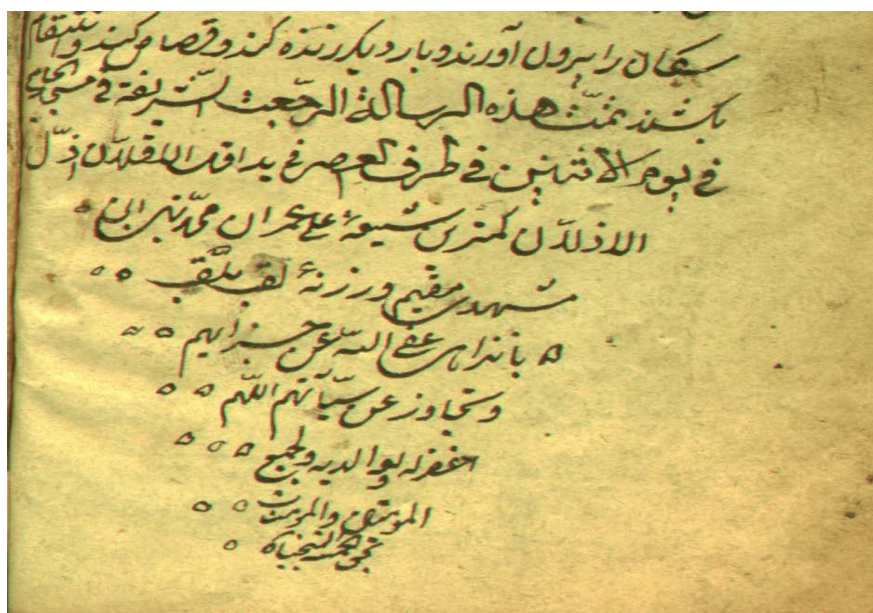 سکان را بیرون آورند و بار دیگر زنده کند و قصاص کند و انتقام
بکشند تمت هذه الرسالة الرجعت الشریفة فی مسجد الجامع
فی یوم الاثنین فی طرف العصر فی ید اقل الاقلین اذل
الاذلین کمترین شیعهٔ علی عمران محمد بن
مشهدی مقیم ورزنهٔ لقب ملقب
عفی الله عن جرایم
و تجاوز عن سیآتهم اللهم
اغفر له ولوالدیه ولجمیع
المومنین والمومنات
بحق محمد